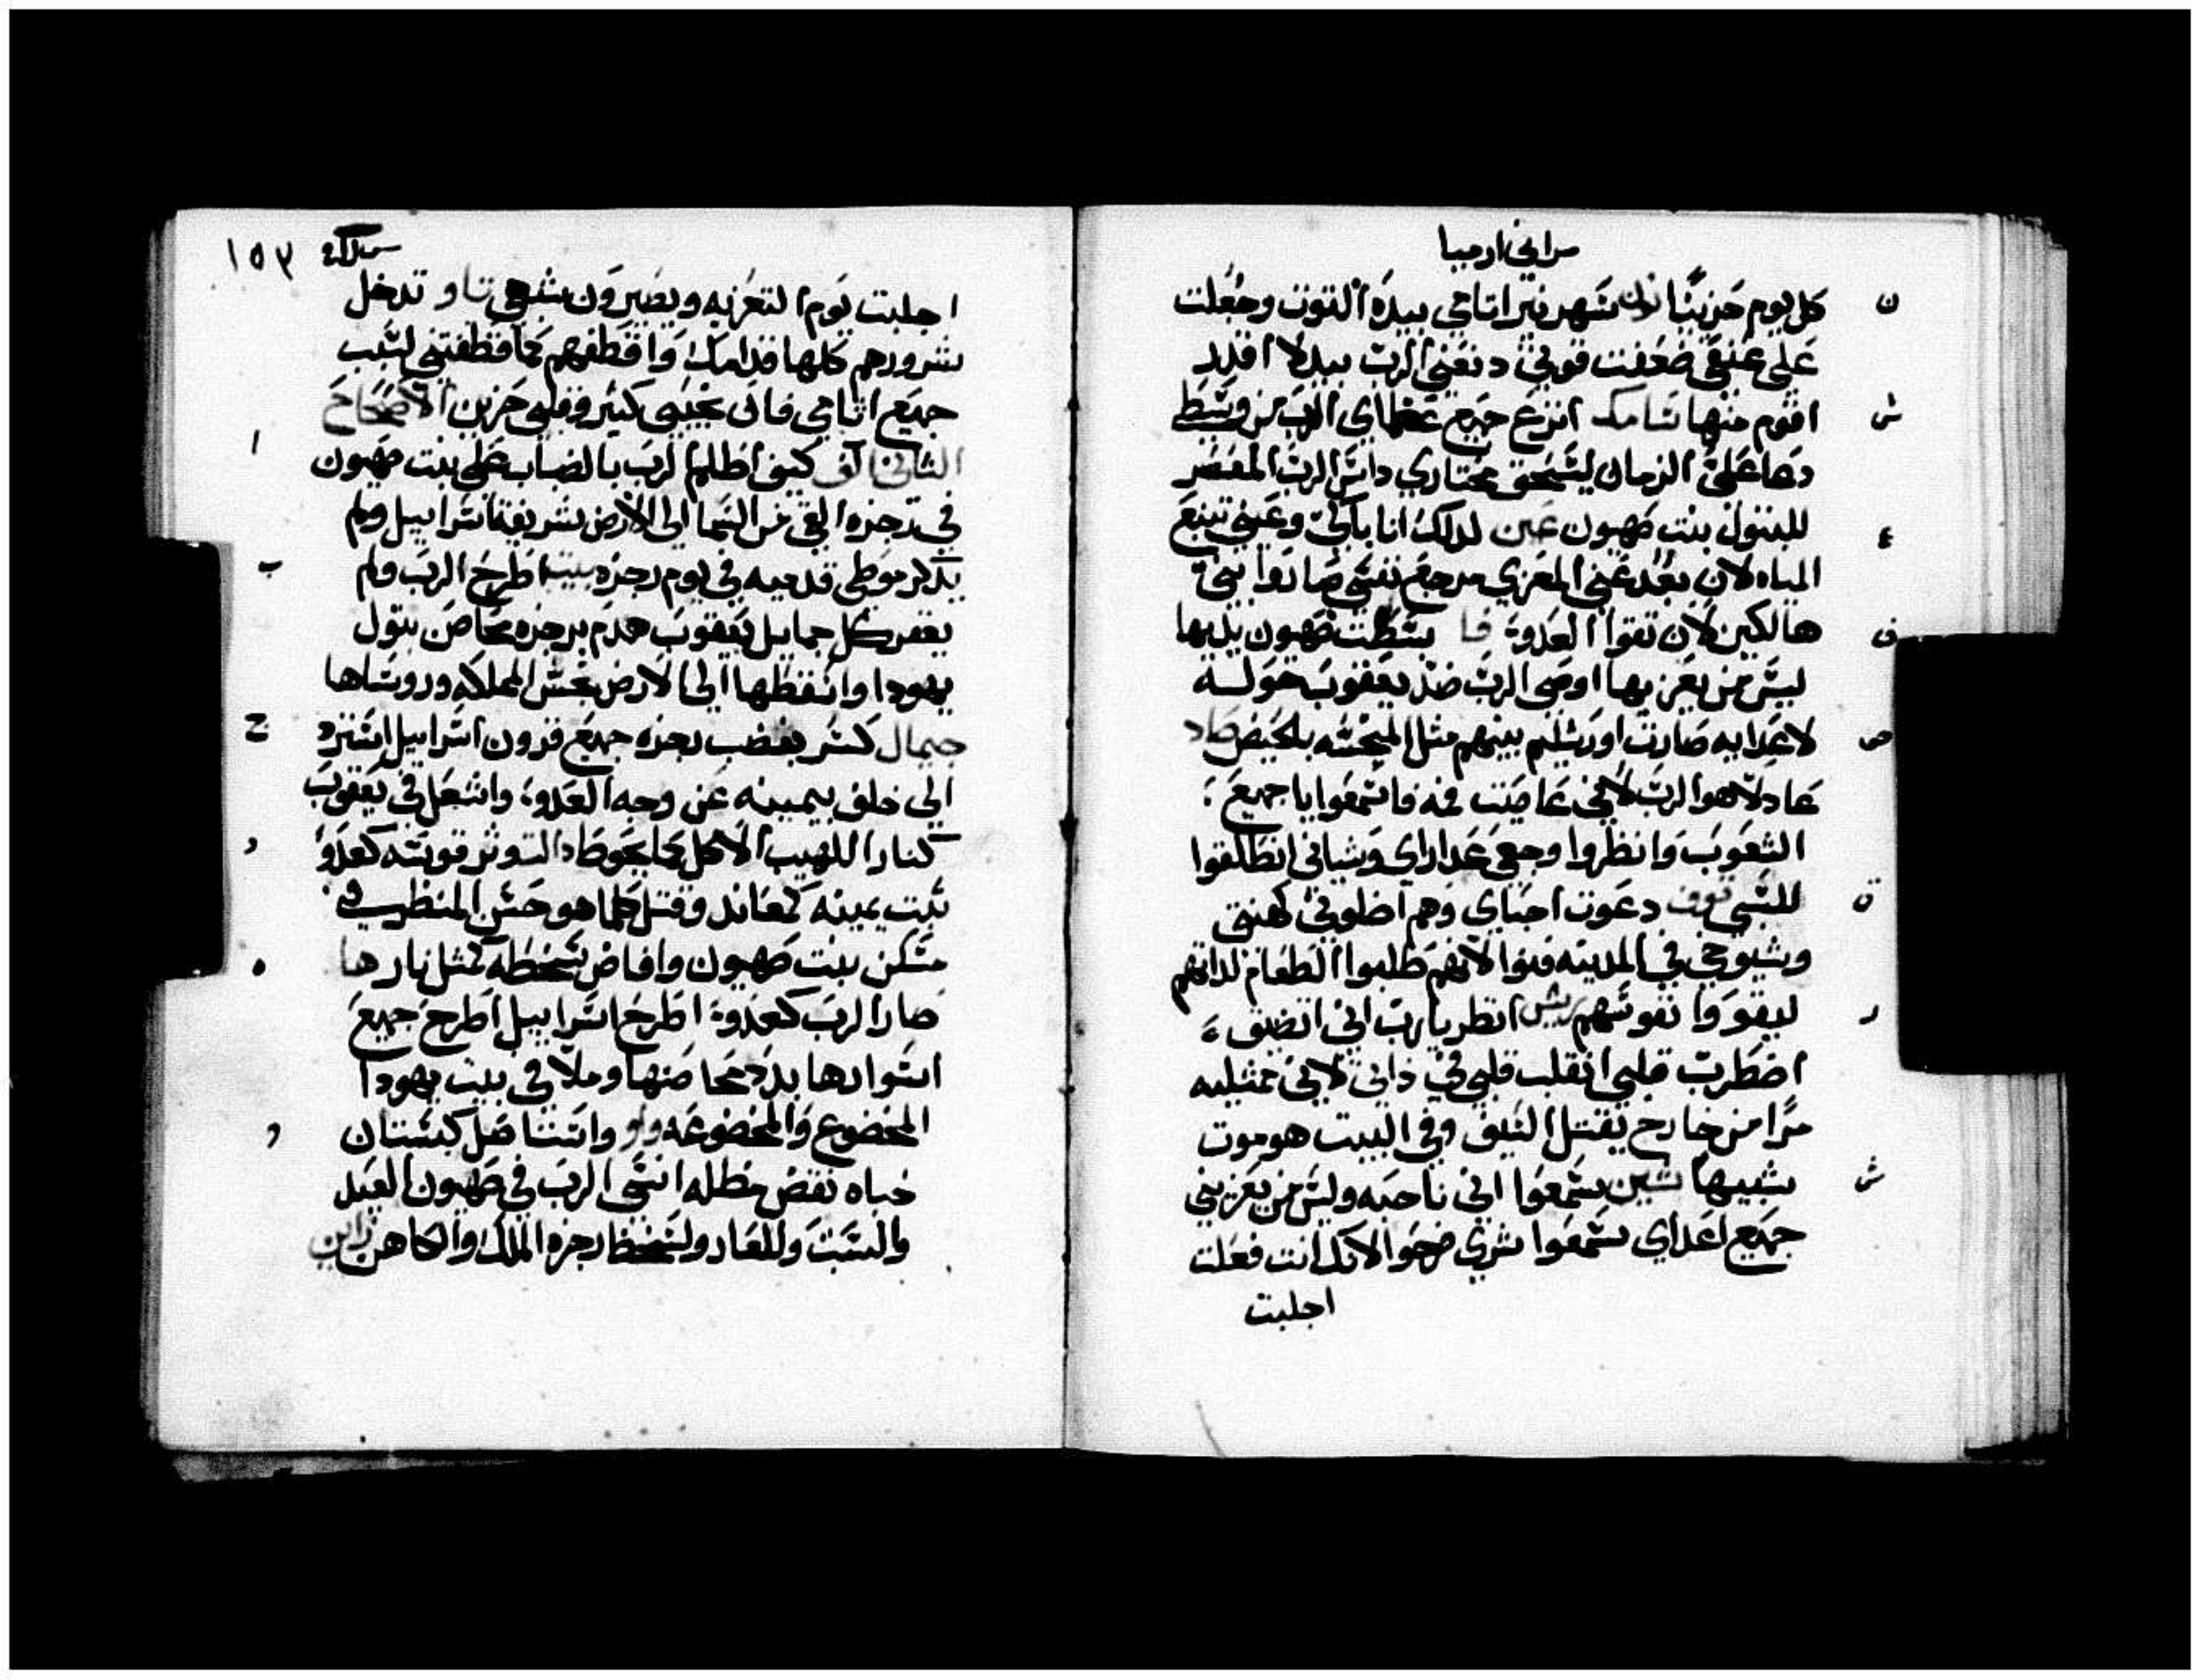 مراثي ارميا
كل يوم حزينًا نون شهر نير اثامي بيده التوت وجعلت
على عنقي ضعفت قوتي دفعني الرب بيد لا اقدر
اقوم منها سامك انزع جميع عظماي الرب من وسطي
دعا على الزمان ليسحق مختاري داس الرب المعصر
للبتول بنت صهيون عين لدلك انا باكي وعيني تنبع
المياه لان بعد عني المعزي مرجع نفسي صاروا بني
هالكين لان تقوا العدو فا بسطت صهيون يديها
ليس من يعزيها اوصى الرب ضد يعقوب حوله
لاعدايه صارت اورشليم بينهم مثل المنجسه بالحيض صاد
عادلًا هو الرب لاني عاصيت فمه فاسمعوا يا جميع
الشعوب وانظروا وجعي عداراي وشباني انطلقوا
للسبي قوف دعوت احباي وهم اضلوني كهنتي
وشيوخي في المدينه فنوا لانهم طلبوا الطعام لداتهم
ليقووا نفوسهم ريش انظر يا رب اني اتضيق
اضطربت قلبي انقلب قلبي في داتي لاني ممتليه
مرًا من خارج يقتل السيف وفي البيت هو موت
شبيها شين سمعوا اني ناحبه وليس من يعزيني
جميع اعداي سمعوا شري فرحوا لانك انت فعلت
اجلبت
ن
س
ع
ف
ص
ق
ر
ش
١٥٣
اجلبت يوم التعزيه ويصيرون شبهي تاو تدخل
شرورهم كلها قدامك واقطفهم كما قطفتني لسبب
جميع اثامي فان نحيبي كثير وقلبي حزين الاصحاح
الثاني الف كيف اظلم الرب بالضباب على بنت صهيون
في رجزه القى من السما الى الارض شريفة اسراييل ولم
يدكر موطى قدميه في يوم رجزه بيت اطرح الرب ولم
يعفر كل جمايل يعقوب هدم برجزه محاصن بتول
يهودا واسقطها الى الارض نجس المملكه وروساها
جيمال كسر بغضب رجزه جميع قرون اسراييل استرد
الى خلف يمينه عن وجه العدو واشعل في يعقوب
كنار اللهيب الاكل بما يحوط دال توتر قوسه كعدو
ثبت يمينه كمعاند وقتل كلما هو حسن المنظر في
مسكن بنت صهيون وافاض سخطه كمثل نار ها
صار الرب كعدو اطرح اسراييل اطرح جميع
اسوارها بدد محاصنها وملا في بيت يهودا
المخضوع والمخضوعه واو واستاصل كبستان
خباه نقض مظله انسى الرب في صهيون العيد
والسبت وللعار ولسخط رجزه الملك والكاهن زاين
ا
ب
ج
د
ه
و